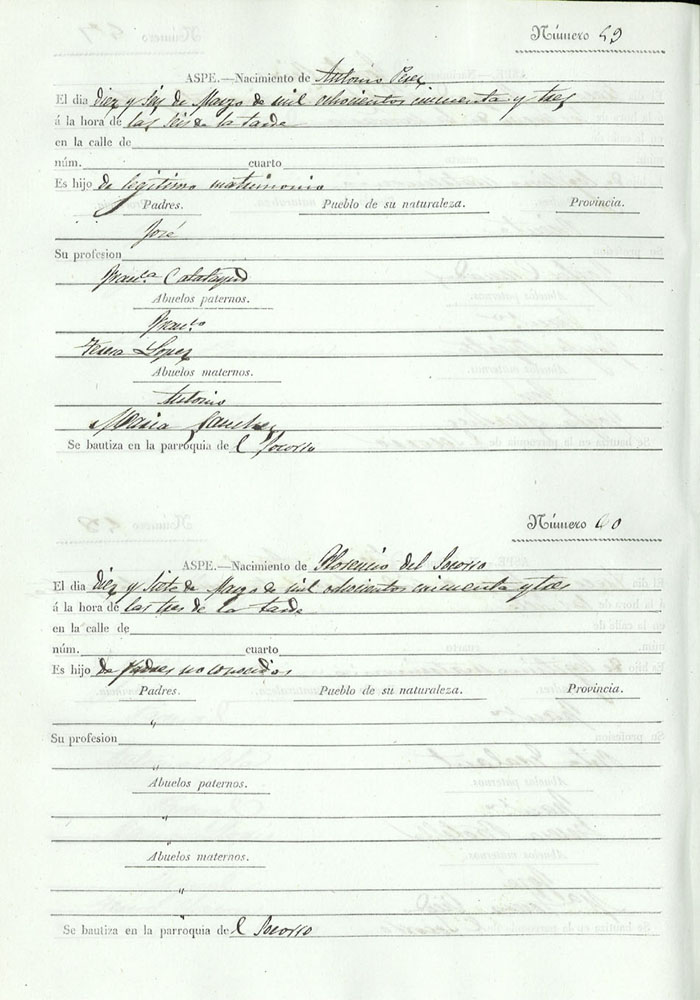 Número 59
ASPE.—Nacimiento de Antonio Perez
El dia diez y seis de Marzo de mil ochocientos cincuenta y tres
á la hora de las seis de la tarde
en la calle de
núm. cuarto
Es hijo de legitimo matrimonio
Padres. Pueblo de su naturaleza. Provincia.
José
Su profesion
Fran.ca Calatayud
Abuelos paternos.
Fran.co
Teresa Lopez
Abuelos maternos.
Antonio
Maria Sanchez
Se bautiza en la parroquia de l Socorro
Número 60
ASPE.—Nacimiento de Florencio del Socorro
El dia diez y siete de Marzo de mil ochocientos cincuenta y tres
á la hora de las tres de la tarde
en la calle de
núm. cuarto
Es hijo de padres no conocidos
Padres. Pueblo de su naturaleza. Provincia.
"
Su profesion
"
Abuelos paternos.
"
Abuelos maternos.
"
Se bautiza en la parroquia de l Socorro